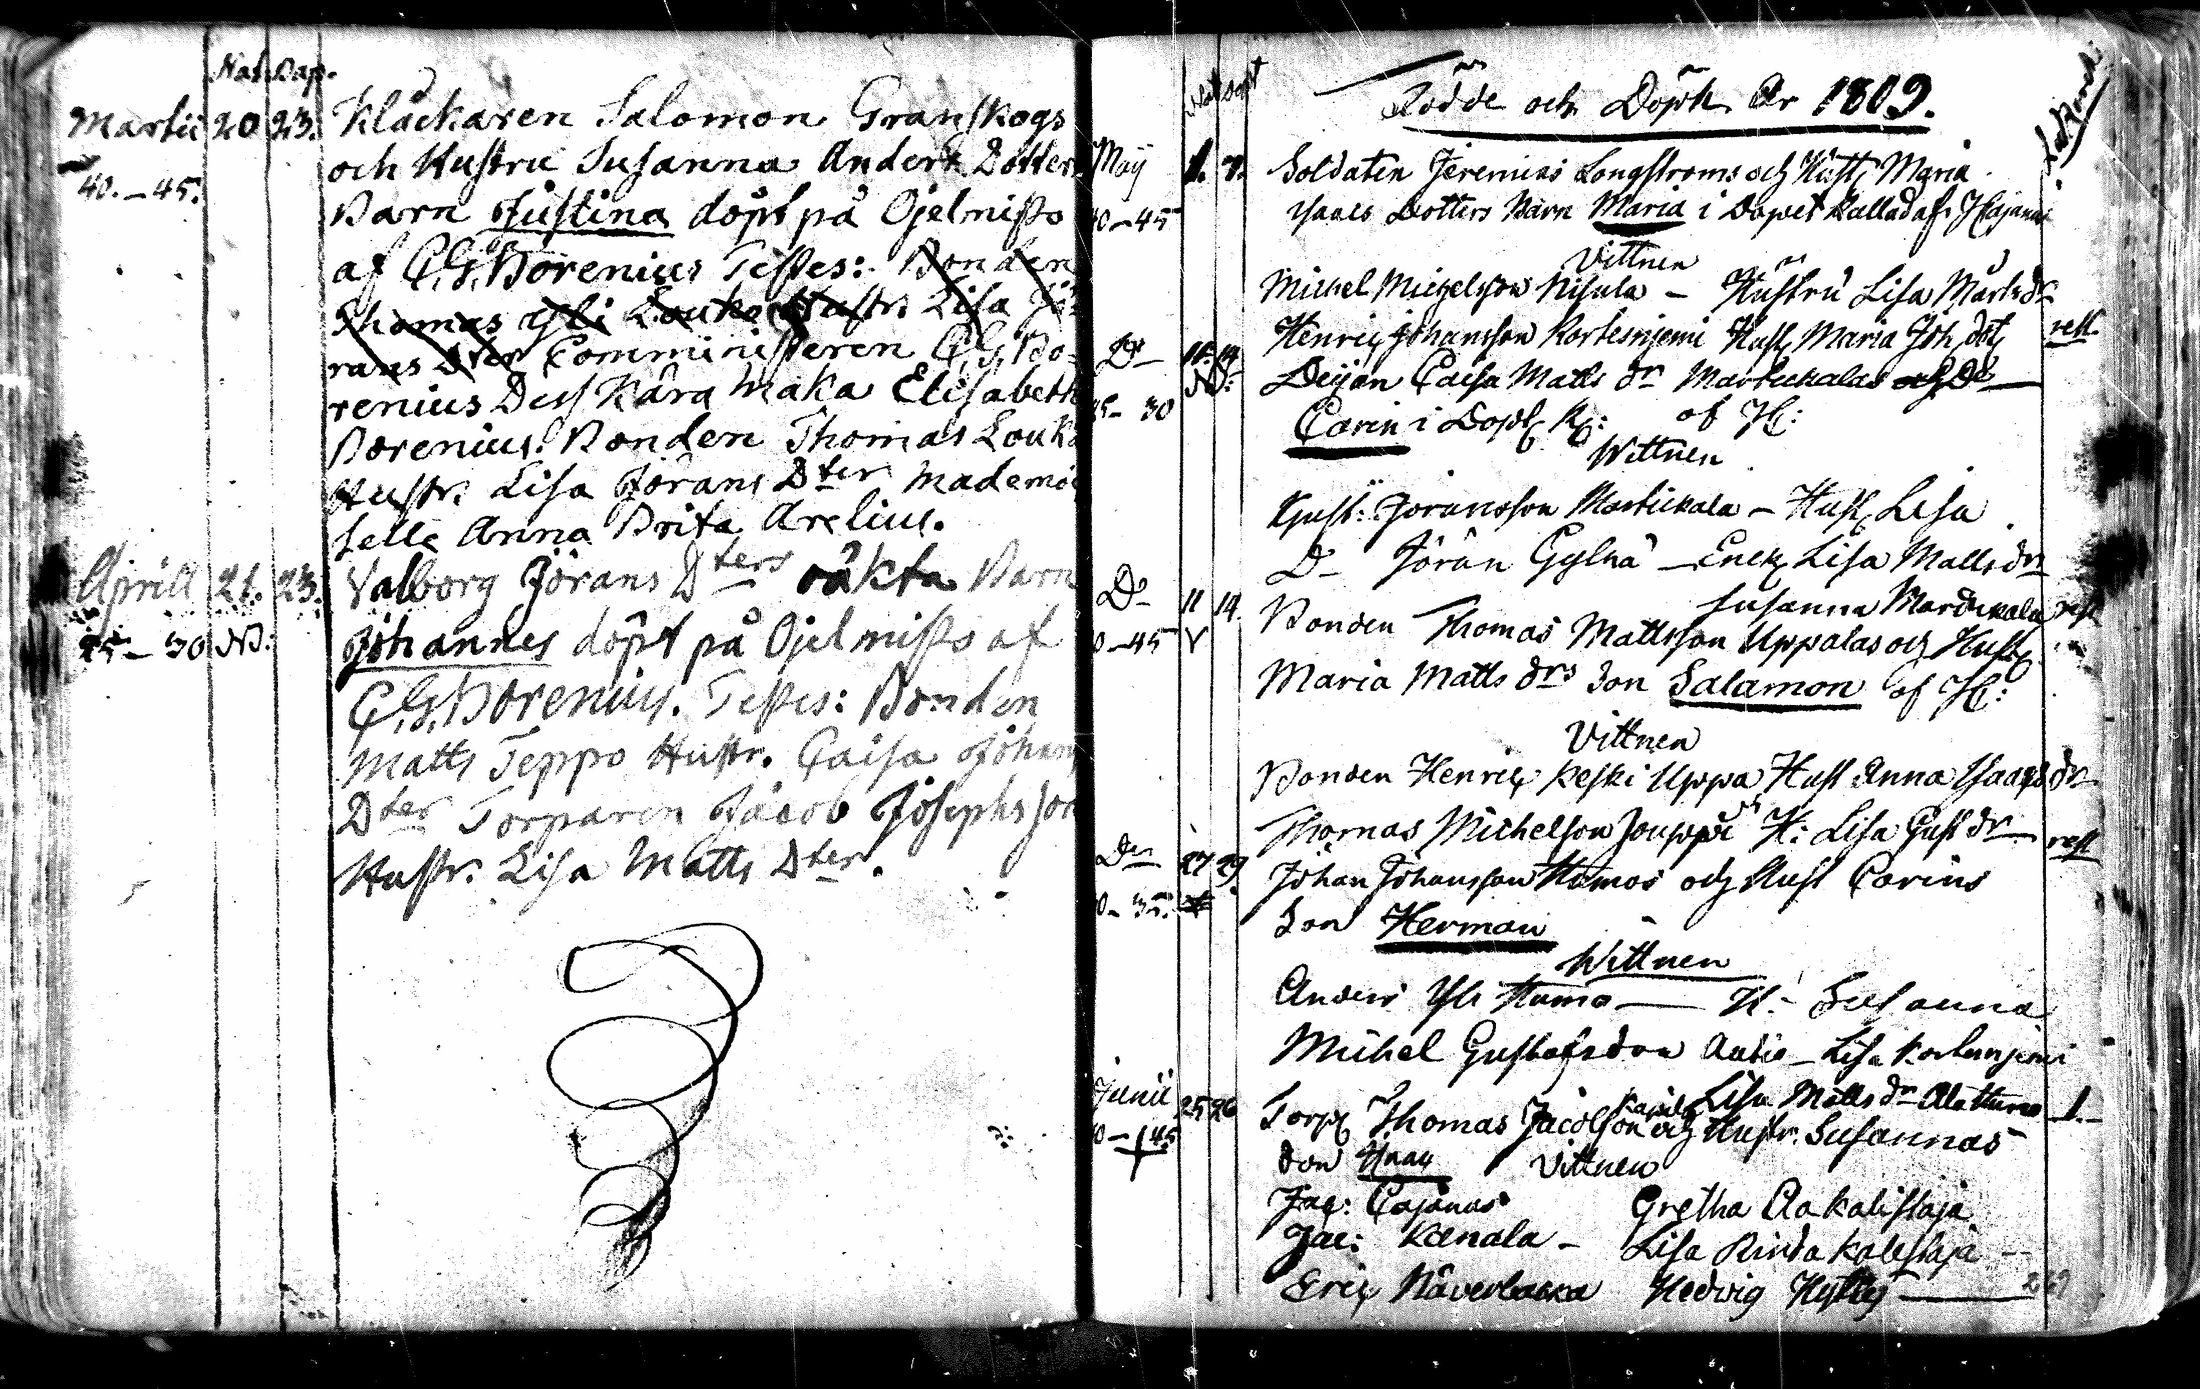 Nat. Bap.
Martii 20 23. Klåckaren Salomon Granskogs
och Hustru Susanna Anders Dotters
40.–45. Barn Justina döpt på Ojelnißo
af C.G. Borenius Testes: Bonden
Thomas Yli Louko Hustr. Lisa Jö-
rans Dter Comministeren C.G. Bo-
renius Dess Kära Maka Elisabeth
Borenius. Bonden Thomas Louko
Hustr. Lisa Jörans Dter Mademoi
selle Anna Brita Arelius.
Aprill 21. 23. Valborg Jörans Dters oäkta Barn
25–30 Johannes döpt på Ojelnißo af
C.G. Borenius. Testes: Bonden
Matts Teppo Hustr. Caisa Johans
Dter Torparen Jacob Josephsson
Hustr. Lisa Matts Dter.
Födde och Döpte År 1809.
May 1. 7. Soldaten Jeremias Longströms och Hust. Maria
Isaacs Dotters Barn Maria i Dopet kallad af J Cajanus
0–45
Vittnen
Michel Michelsson Nisula – Hustru Lisa Mårts dr
Henric Johansson Kortesnjemi Hust Maria Joh. dot
Do 14 Deijan Caisa Matts dr Martickalas
30 Carin i Dopt K: af JC:
Wittnen
Gust: Joransson Martickala – Hust Lisa
D– Jöran Gylkä – Enck Lisa Matts dr
Susanna Martickala
Do 11 14. Bonden Thomas Mattsson Uppalas och Hust
0–45 Maria Matts drs Son Salamon af JC:
Vittnen
Bonden Henric Keski Uppa Hust Anna Isaacs dr
Thomas Michelson Jouppi H: Lisa Gust dr
Do 27 29. Johan Johansson Humos och Hust Carins
0–35. Son Herman
Wittnen
Anders Yli Humo – H: Susanna
Michel Gustafsson Autio – Lisa Kortesnjemi
Lisa Matts dr Alatturo
Junii 25 26 Torp Thomas Jacobsson och Hustr. Susannas
0–45 Son Isaac Vittnen
Jac: Cajanus Gretha Aakalistaja
Jac: Kanala – Lisa Rinda Kalistaja
Eric Näverbacka Hedvig